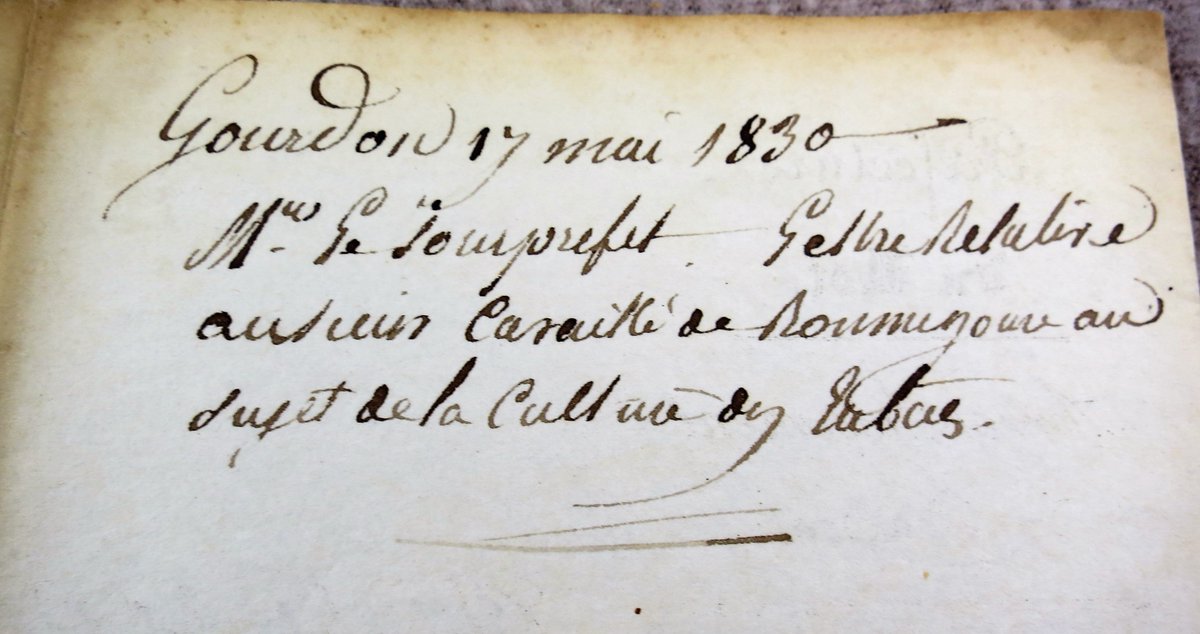 Gourdon 17 mai 1830
Mr. Le Sousprefet. Lettre Relative
au sieur Cavaillé de Roumegouse au
sujet de la Culture des Tabacs.